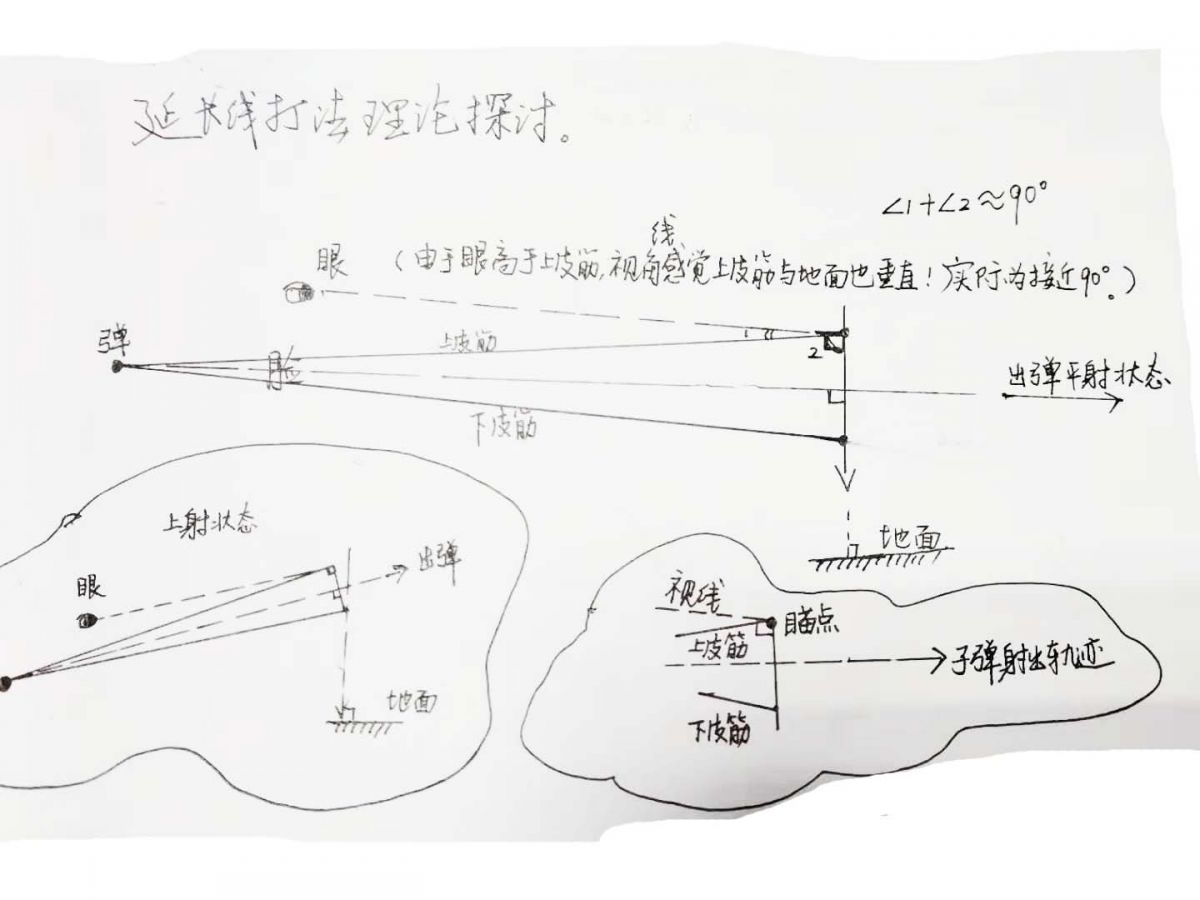 延长线打法理论探讨。
∠1+∠2≈90°
线
眼 (由于眼高于上皮筋,视角感觉上皮筋与地面也垂直!实际为接近90°。)
弹
上皮筋
1
2
脸
出弹平射状态
下皮筋
地面
上射状态
出弹
眼
地面
视线
瞄点
上皮筋
子弹射出轨迹
下皮筋